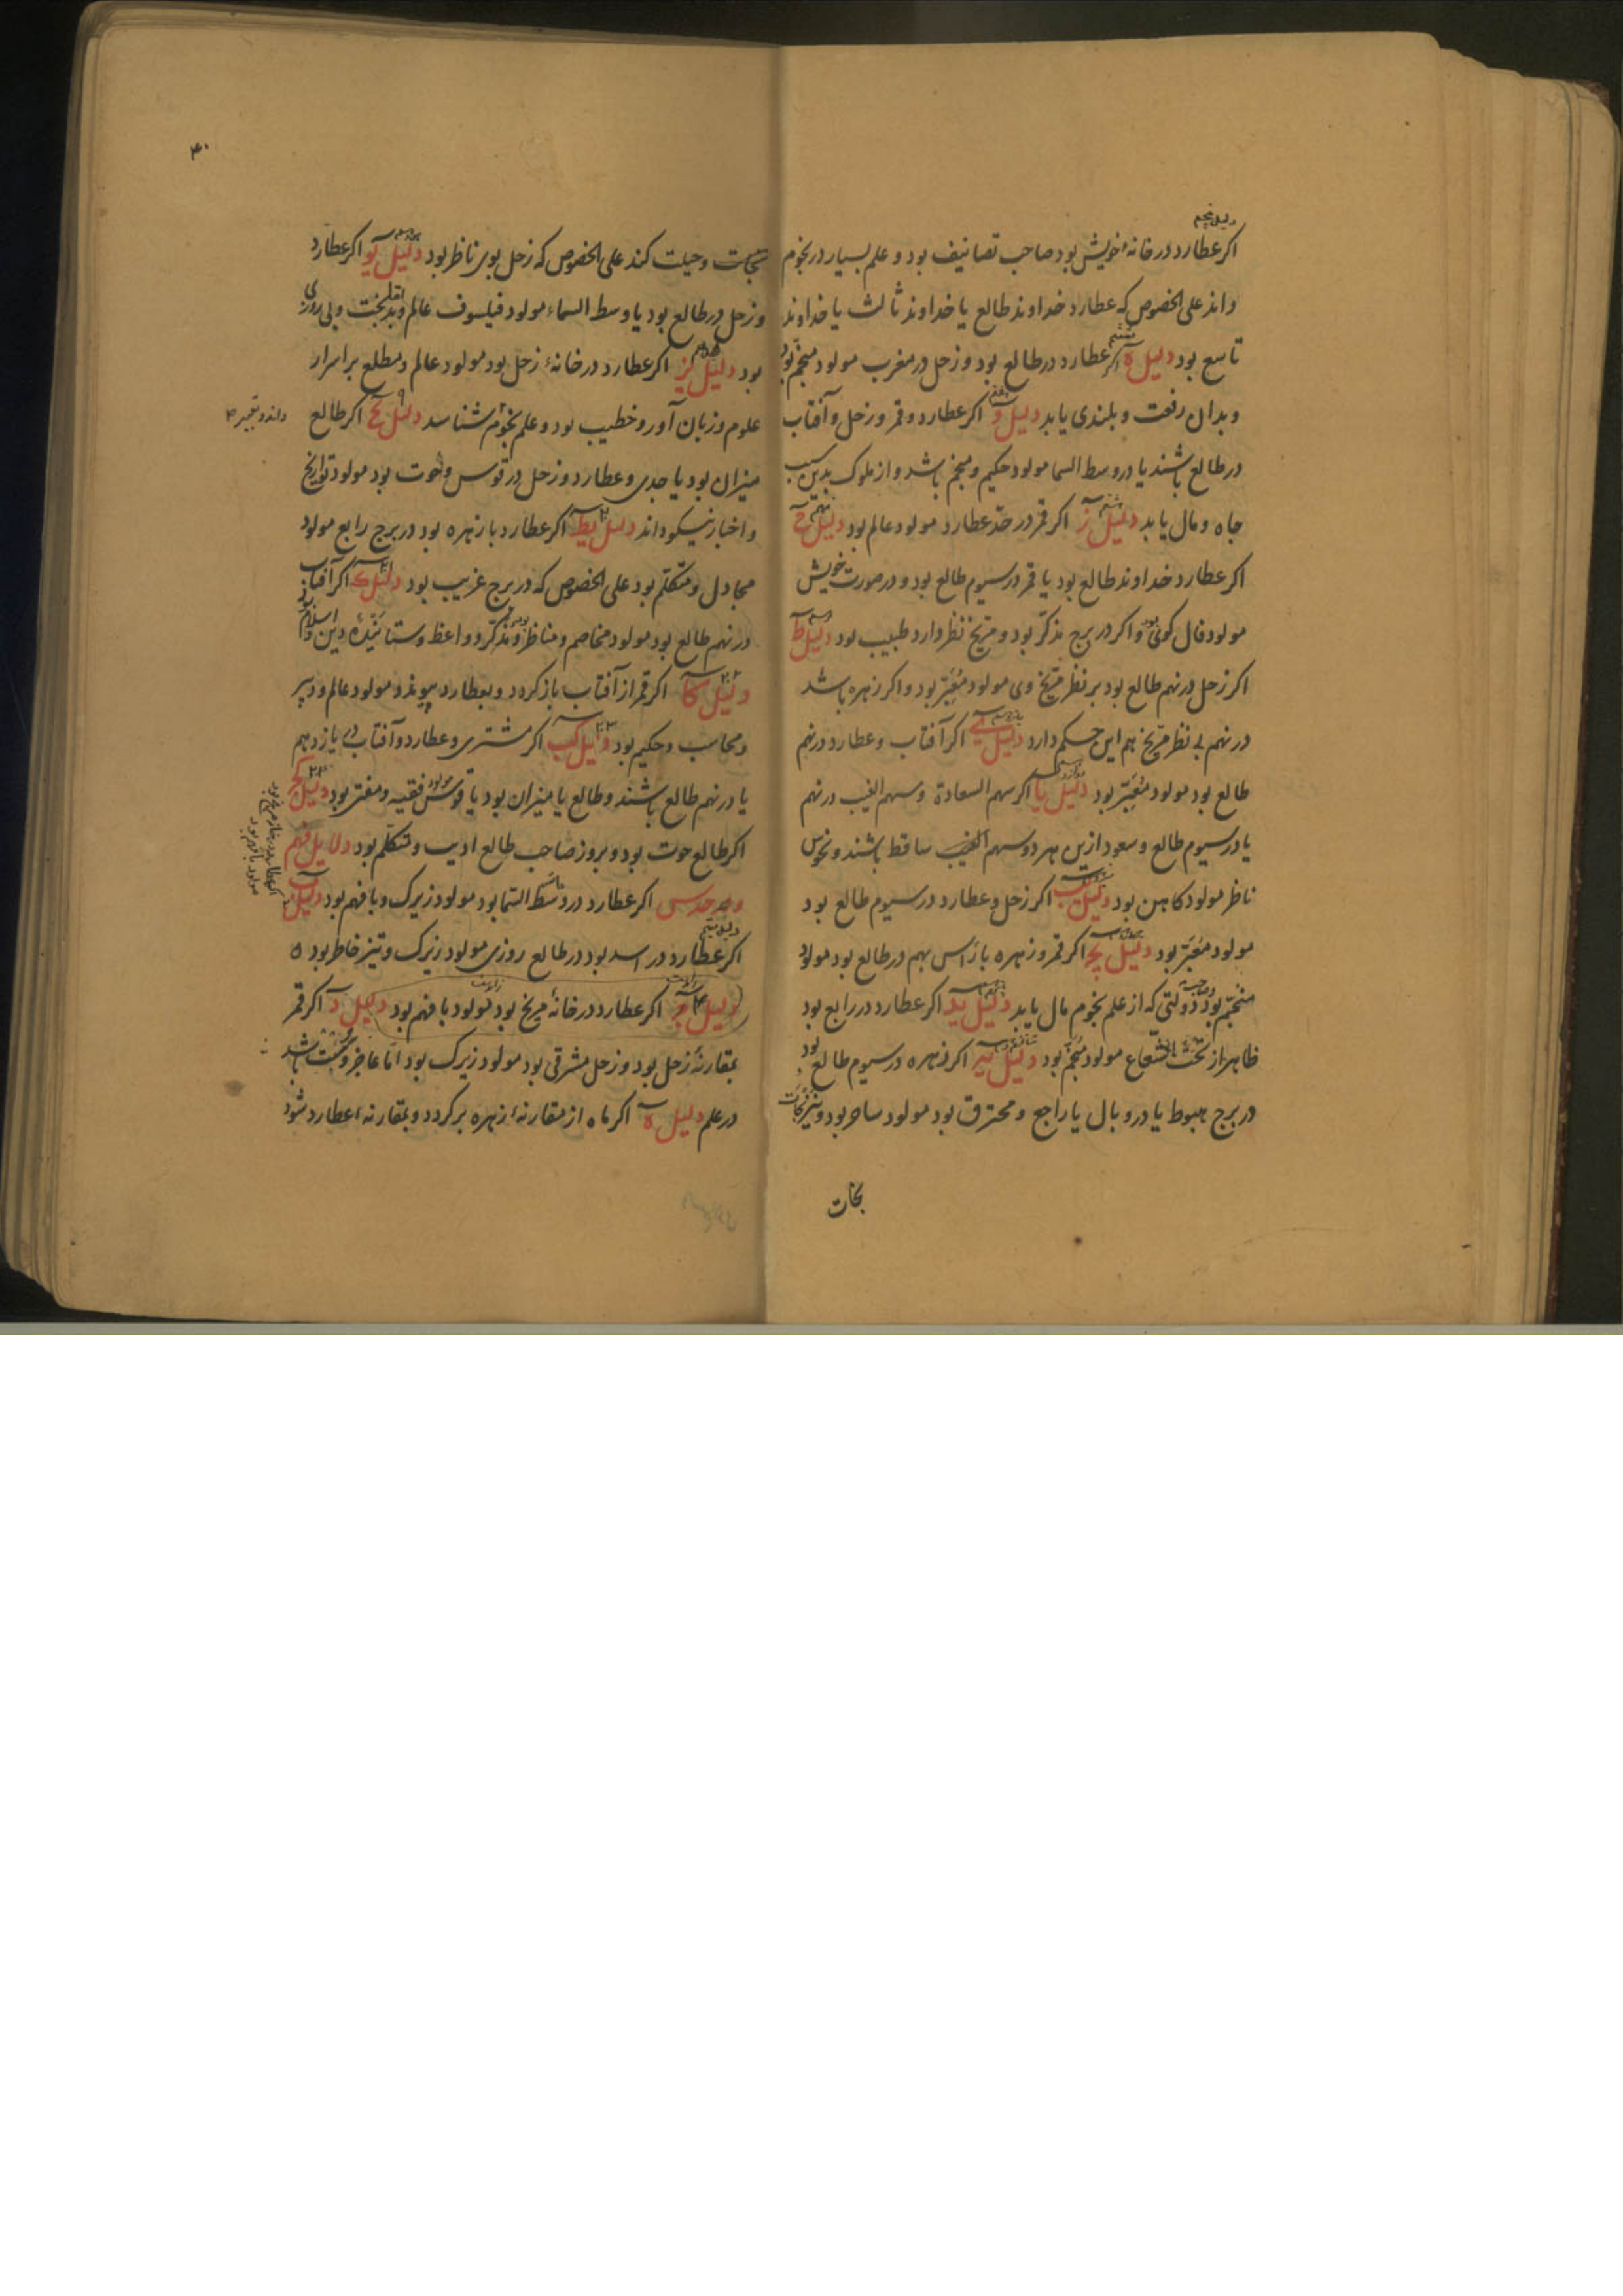 دلیل پنجم
اکر عطارد در خانهٔ خویش بود صاحب تصانیف بود و علم بسیار در نجوم
داند علی الخصوص که عطارد خداوند طالع یا خداوند ثالث یا خداوند
تاسع بود دلیل ه اکر عطارد در طالع بود و زحل در مغرب مولود منجم بود
و بدان رفعت و بلندی یابد دلیل و اکر عطارد و قمر و زحل و آفتاب
در طالع باشند یا در وسط السما مولود حکیم و منجم باشد و از ملوک بدین سبب
جاه و مال یابد دلیل ز اکر قمر در حدّ عطارد مولود عالم بود دلیل ح
اکر عطارد خداوند طالع بود یا قمر در سیوم طالع بود و در صورت خویش
مولود فال کوی بود و اکر در برج مذکّر بود و مریخ نظر دارد طبیب بود دلیل ط
اکر زحل در نهم طالع بود بر نظر مریخ وی مولود مُعَبّر بود و اکر زهره باشد
در نهم بی نظر مریخ هم این حکم دارد دلیل ی اکر آفتاب و عطارد در نهم
طالع بود مولود مُعَبّر بود دلیل یا اکر سهم السعادة و سهم الغیب در نهم
یا در سیوم طالع و سعود ازین هر دو سهم الغیب ساقط باشند و نحوس
ناظر مولود کاهن بود دلیل یب اکر زحل و عطارد در سیوم طالع بود
مولود مُعَبّر بود دلیل یج اکر قمر و زهره با رَاس بهم در طالع بود مولود
منجّم بود و صاحب دولتی که از علم نجوم مال یابد دلیل ید اکر عطارد در رابع بود
ظاهر از تحت الشّعاع مولود منجّم بود دلیل یه اکر زهره در سیوم طالع بود
در برج هبوط یا در وبال یا راجع و محترق بود مولود ساحر بود و نیرنجات
نجات
۴۰
نجات و حیلت کند علی الخصوص که زحل بوی ناظر بود دلیل یو اکر عطارد
و زحل در طالع بود یا وسط السماء مولود فیلسوف عالم و بدبخت و بی روزی
بود دلیل یز اکر عطارد در خانهٔ زحل بود مولود عالم و مطلع بر اسرار
علوم و زبان آور و خطیب بود و علم نجوم شناسد دلیل یح اکر طالع
میزان بود یا جدی و عطارد و زحل در قوس و حوت بود مولود تواریخ
و اخبار نیکو داند دلیل یط اکر عطارد با زهره بود در برج رابع مولود
مجادل و متکلّم بود علی الخصوص که در برج غریب بود دلیل ک اکر آفتاب
در نهم طالع بود مولود مخاصم و مناظر و مذکّر و واعظ و ستایندهٔ دین و اسلام بود
دلیل کا اکر قمر از آفتاب باز کردد و بعطارد پیوندد مولود عالم و دبیر
و محاسب و حکیم بود دلیل کب اکر مشتری و عطارد و آفتاب در یازدهم
یا در نهم طالع باشند و طالع یا میزان بود یا قوس مولود فقیه و مفتی بود دلیل کج
اکر طالع حوت بود و بروز صاحب طالع ادیب و متکلّم بود دلایل فهم
و حدس اکر عطارد در وسط السّما بود مولود زیرک و با فهم بود دلیل
اکر عطارد در اسد بود در طالع روزی مولود زیرک و تیز خاطر بود ه
دلیل ج اکر عطارد در خانهٔ مریخ بود مولود با فهم بود دلیل د اکر قمر
بمقارنهٔ زحل بود و زحل مشرقی بود مولود زیرک بود امّا عاجز و سست باشد
در علم دلیل ه اکر ماه از مقارنهٔ زهره برکردد و بمقارنهٔ عطارد شود